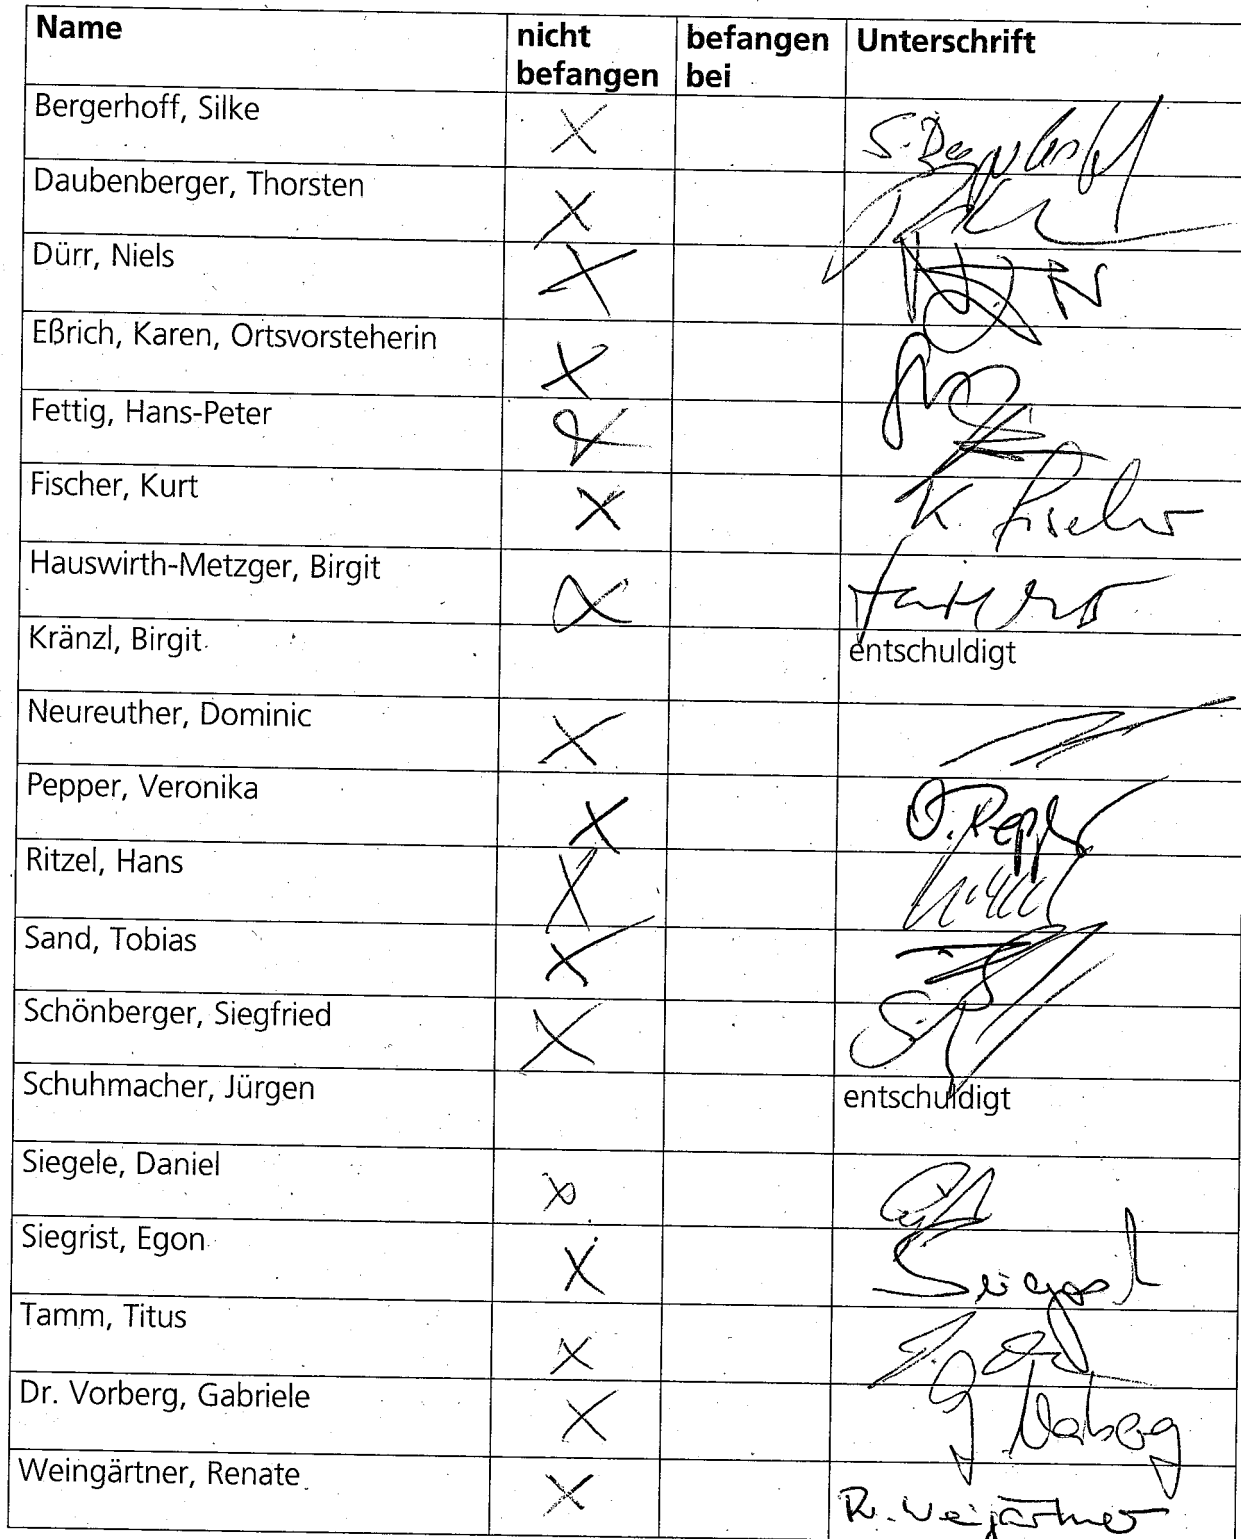 Name nicht befangen befangen bei Unterschrift
Bergerhoff, Silke X
Daubenberger, Thorsten X
Dürr, Niels X
Eßrich, Karen, Ortsvorsteherin X
Fettig, Hans-Peter X
Fischer, Kurt X K. Fischer
Hauswirth-Metzger, Birgit X
Kränzl, Birgit entschuldigt
Neureuther, Dominic X
Pepper, Veronika X V. Pepper
Ritzel, Hans X
Sand, Tobias X
Schönberger, Siegfried X
Schuhmacher, Jürgen entschuldigt
Siegele, Daniel X
Siegrist, Egon X Siegrist
Tamm, Titus X
Dr. Vorberg, Gabriele X G Vorberg
Weingärtner, Renate X R. Weingärtner